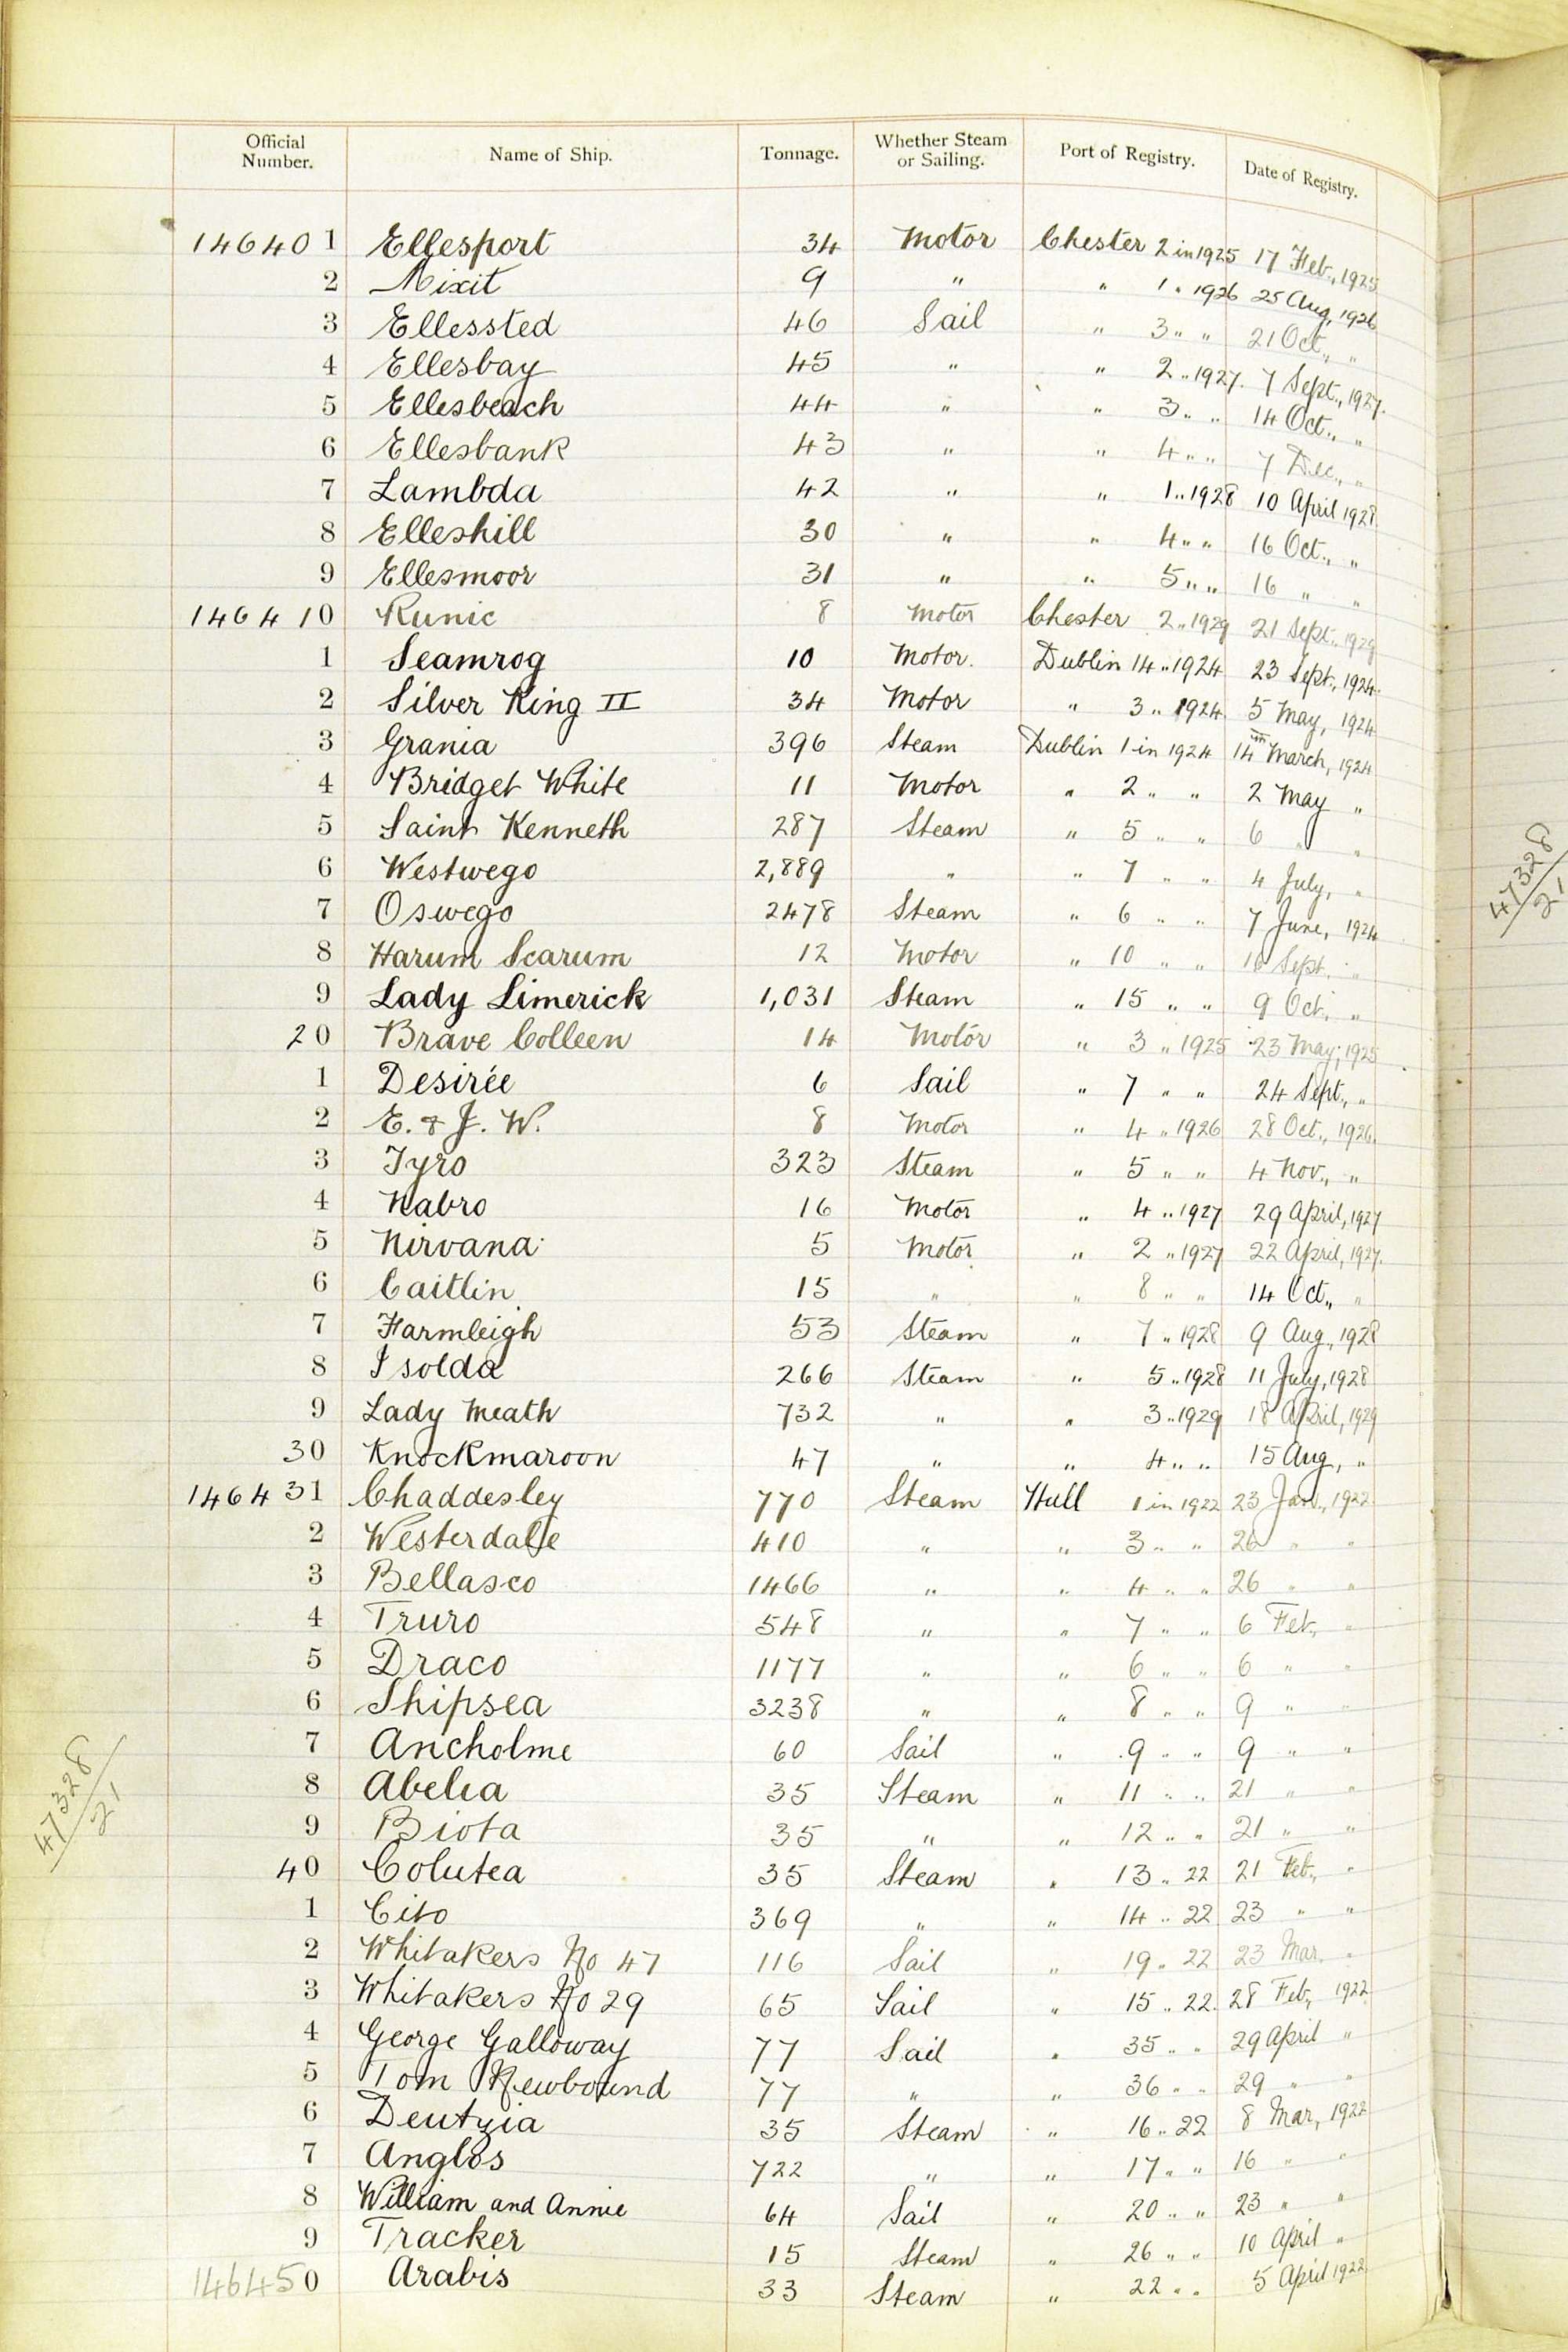 Official Number. Name of Ship. Tonnage. Whether Steam or Sailing. Port of Registry. Date of Registry.
146401 Ellesport 34 Motor Chester 2 in 1925 17 Feb., 1925
2 Mixit 9 " " 1 " 1926 25 Aug, 1926
3 Ellessted 46 Sail " 3 " " 21 Oct., "
4 Ellesbay 45 " " 2 " 1927. 7 Sept., 1927.
5 Ellesbeach 44 " " 3 " " 14 Oct., "
6 Ellesbank 43 " " 4 " " 7 Dec., "
7 Lambda 42 " " 1 " 1928 10 April 1928.
8 Elleshill 30 " " 4 " " 16 Oct., "
9 Ellesmoor 31 " " 5 " " 16 " "
146410 Runic 8 Motor Chester 2 " 1929 21 Sept., 1929
1 Seamrog 10 Motor. Dublin 14 " 1924 23 Sept., 1924.
2 Silver King II 34 Motor " 3 " 1924 5 May, 1924
3 Grania 396 Steam Dublin 1 in 1924 14th March, 1924
4 Bridget White 11 Motor " 2 " " 2 May "
5 Saint Kenneth 287 Steam " 5 " " 6 " "
6 Westwego 2,889 " " 7 " " 4 July, "
7 Oswego 2478 Steam " 6 " " 7 June, 1924
8 Harum Scarum 12 Motor " 10 " " Sept. "
9 Lady Limerick 1,031 Steam " 15 " " 9 Oct. "
20 Brave Colleen 14 Motor " 3 " 1925 23 May, 1925
1 Desirée 6 Sail " 7 " " 24 Sept., "
2 E. & J. W. 8 Motor " 4 " 1926 28 Oct., 1926.
3 Tyro 323 Steam " 5 " " 4 Nov., "
4 Nabro 16 Motor " 4 " 1927 29 April, 1927
5 Nirvana 5 Motor " 2 " 1927 22 April, 1927.
6 Caitlin 15 " " 8 " " 14 Oct., "
7 Farmleigh 53 Steam " 7 " 1928 9 Aug., 1928
8 Isolda 266 Steam " 5 " 1928 11 July, 1928
9 Lady Meath 732 " " 3 " 1929 18 April, 1929
30 Knockmaroon 47 " " 4 " " 15 Aug, "
146431 Chaddesley 770 Steam Hull 1 in 1922 23 Jan., 1922
2 Westerdale 410 " " 3 " " 26 " "
3 Bellasco 1466 " " 4 " " 26 " "
4 Truro 548 " " 7 " " 6 Feb., "
5 Draco 1177 " " 6 " " 6 " "
6 Shipsea 3238 " " 8 " " 9 " "
7 Ancholme 60 Sail " 9 " " 9 " "
8 Abelia 35 Steam " 11 " " 21 " "
9 Biota 35 " " 12 " " 21 " "
40 Colutea 35 Steam " 13 " 22 21 Feb., "
1 Cito 369 " " 14 " 22 23 " "
2 Whitakers No 47 116 Sail " 19 " 22 23 Mar. "
3 Whitakers No 29 65 Sail " 15 " 22. 28 Feb, 1922
4 George Galloway 77 Sail " 35 " " 29 April "
5 Tom Newbound 77 " " 36 " " 29 " "
6 Deutzia 35 Steam " 16 " 22 8 Mar, 1922
7 Anglos 722 " " 17 " " 16 " "
8 William and Annie 64 Sail " 20 " " 23 " "
9 Tracker 15 Steam " 26 " " 10 April "
146450 Arabis 33 Steam " 22 " " 5 April 1922
47328/21
47328/21